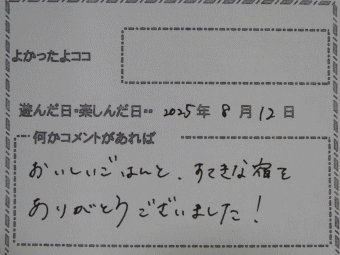 よかったよココ
遊んだ日・楽しんだ日・・ 2025年 8月 12日
何かコメントがあれば
おいしいごはんと、すてきな宿を
ありがとうございました！